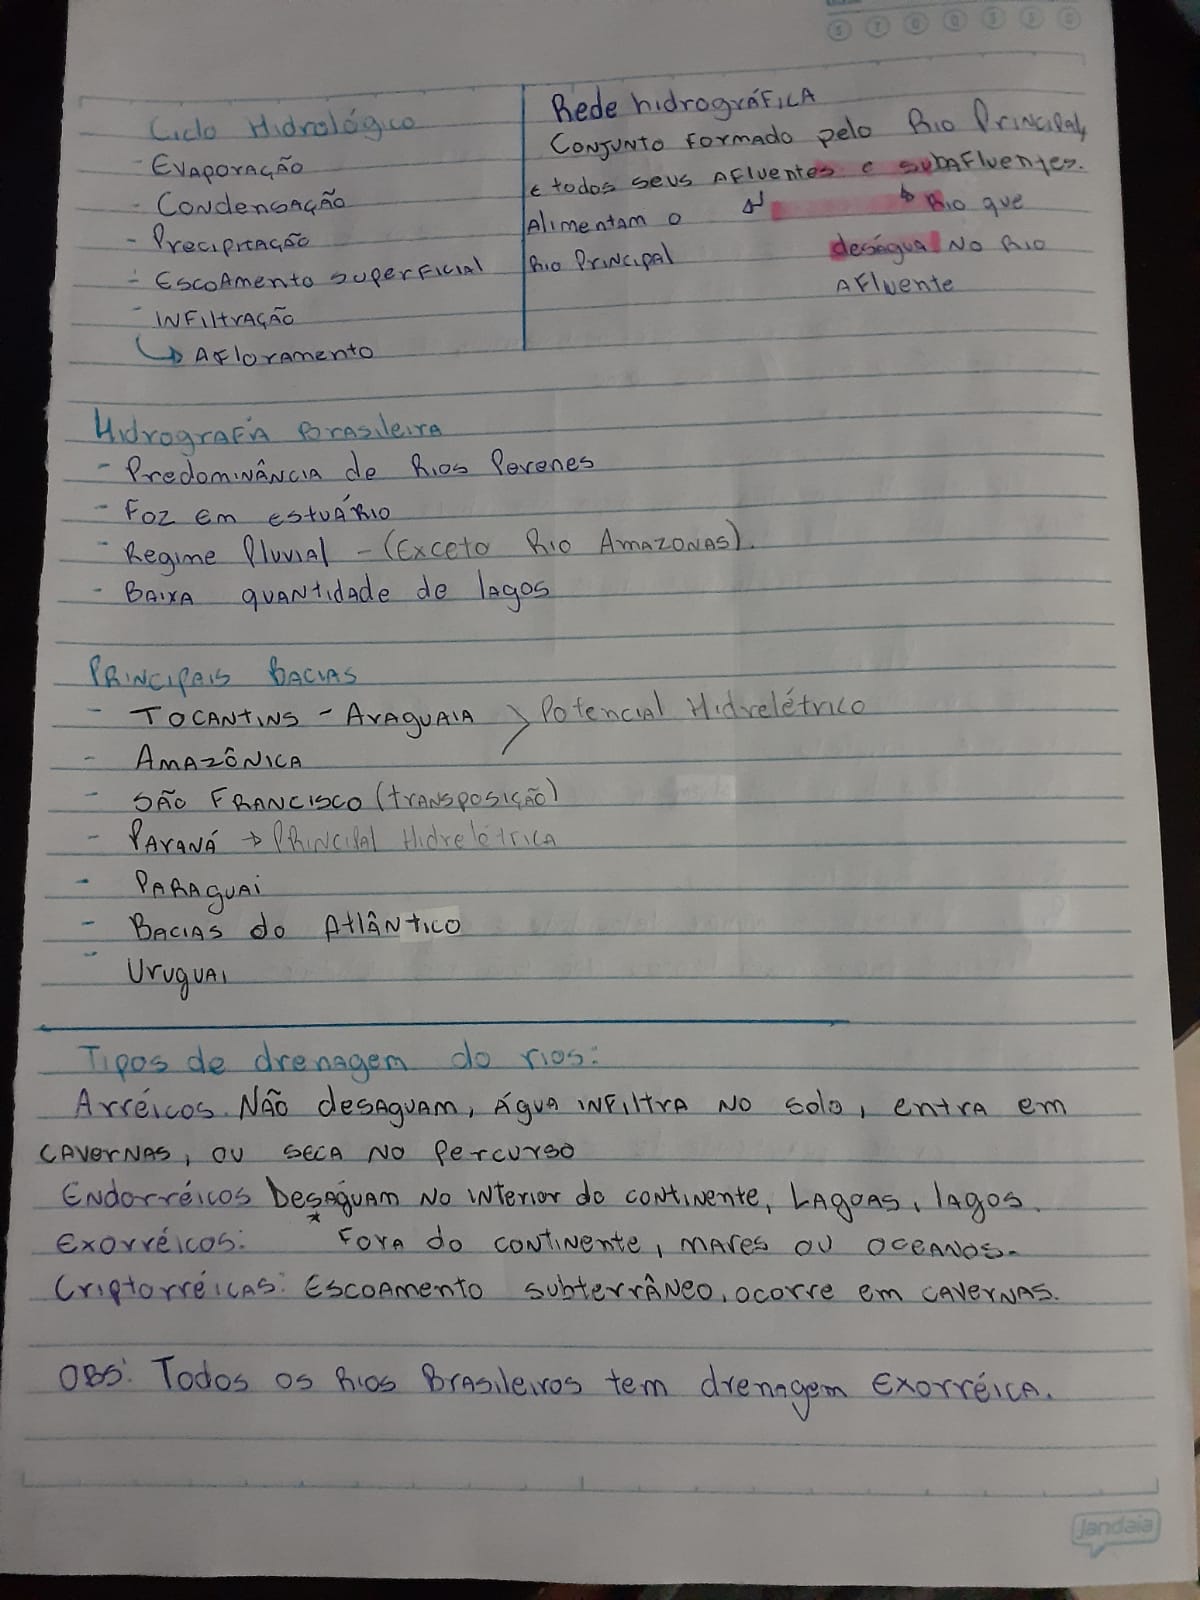 Ciclo Hidrológico
- Evaporação
- Condensação
- Precipitação
- Escoamento superficial
- Infiltração
↳ Afloramento
Rede hidrográfica
Conjunto formado pelo Rio Principal,
e todos seus afluentes e subafluentes.
Alimentam o
Rio Principal
↳ Rio que
deságua no Rio
Afluente
Hidrografia Brasileira
- Predominância de Rios Perenes
- Foz em estuário
- Regime Pluvial - (Exceto Rio Amazonas).
- Baixa quantidade de lagos
Principais Bacias
- Tocantins - Araguaia > Potencial Hidrelétrico
- Amazônica
- São Francisco (transposição)
- Paraná → Principal Hidrelétrica
- Paraguai
- Bacias do Atlântico
- Uruguai
Tipos de drenagem do rios:
Arréicos. Não desaguam, água infiltra no solo, entra em
cavernas, ou seca no percurso
Endorréicos Desaguam no interior do continente, Lagoas, lagos.
Exorréicos: * Fora do continente, mares ou oceanos.
Criptorréicas: Escoamento subterrâneo, ocorre em cavernas.
OBS: Todos os Rios Brasileiros tem drenagem Exorréica.
jandaia